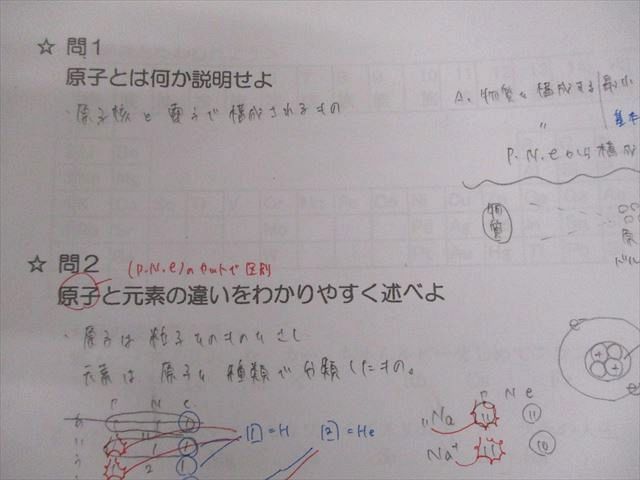 ☆ 問1
原子とは何か説明せよ
・原子核と電子で構成されるもの
A. 物質を構成する 最小
基本
〃
P.N.eから構成
物質
原
☆ 問2
(P.N.e)のセットで区別
原子と元素の違いをわかりやすく述べよ
・原子は粒子そのものをさし
元素は原子を種類で分類したもの。
P N e
あ
い 1 1 1
う 2 1
1 = H
2 = He
P N e
₁₁Na 11 11
Na⁺ 11 10